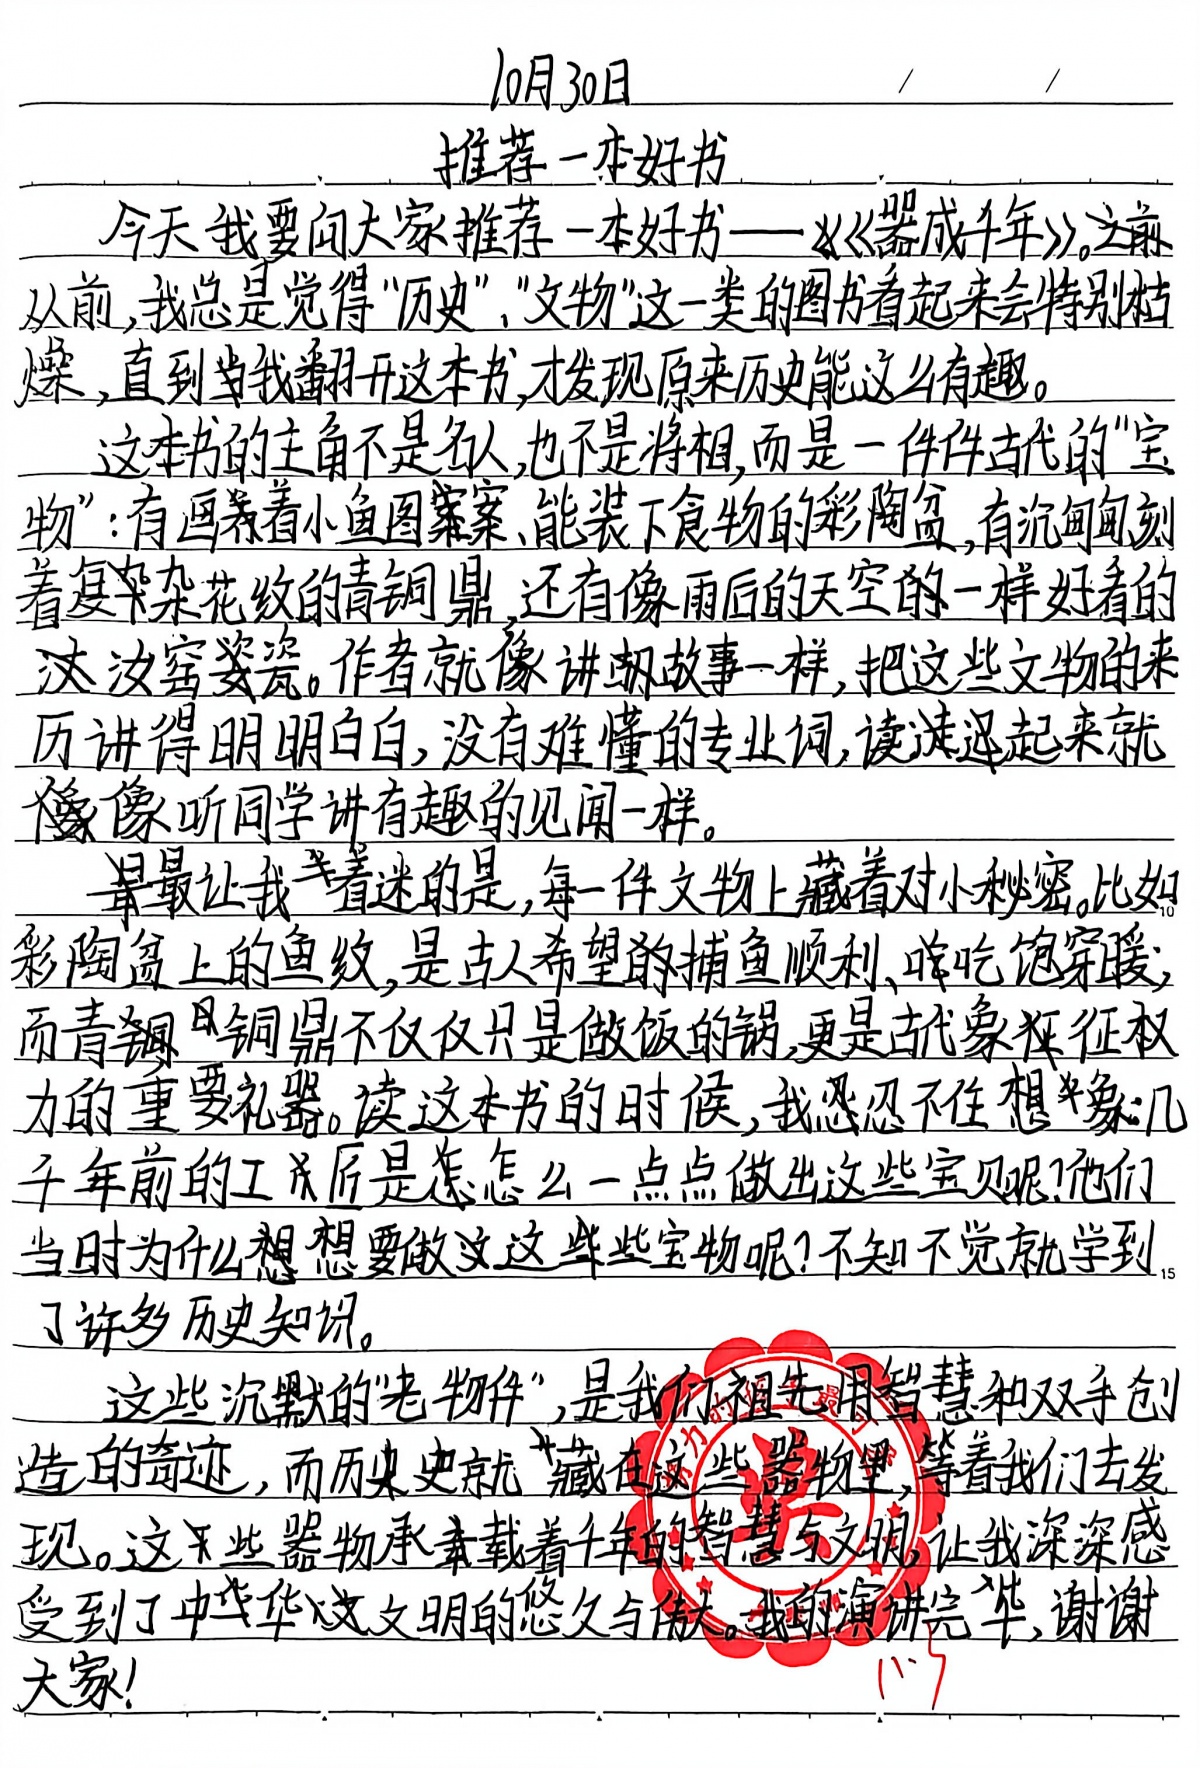 10月30日
推荐一本好书
今天我要向大家推荐一本好书——《器成千年》。
从前,我总是觉得"历史"、"文物"这一类的图书看起来会特别枯
燥,直到当我翻开这本书,才发现原来历史能这么有趣。
这本书的主角不是名人,也不是将相,而是一件件古代的"宝
物":有画着小鱼图案、能装下食物的彩陶盆,有沉甸甸刻
着复杂花纹的青铜鼎,还有像雨后的天空一样好看的
汝窑瓷。作者就像讲故事一样,把这些文物的来
历讲得明明白白,没有难懂的专业词,读起来就
像听同学讲有趣的见闻一样。
最让我着迷的是,每一件文物上藏着对小秘密。比如
彩陶盆上的鱼纹,是古人希望捕鱼顺利、吃饱穿暖;
而青铜鼎不仅仅只是做饭的锅,更是古代象征权
力的重要礼器。读这本书的时候,我忍不住想象:几
千年前的工匠是怎么一点点做出这些宝贝呢?他们
当时为什么想要做这些宝物呢?不知不觉就学到
了许多历史知识。
这些沉默的"老物件",是我们祖先用智慧和双手创
造的奇迹,而历史就藏在这些器物里,等着我们去发
现。这些器物承载着千年的智慧与文明,让我深深感
受到了中华文明的悠久与伟大。我的演讲完毕,谢谢
大家!
10
15
奖